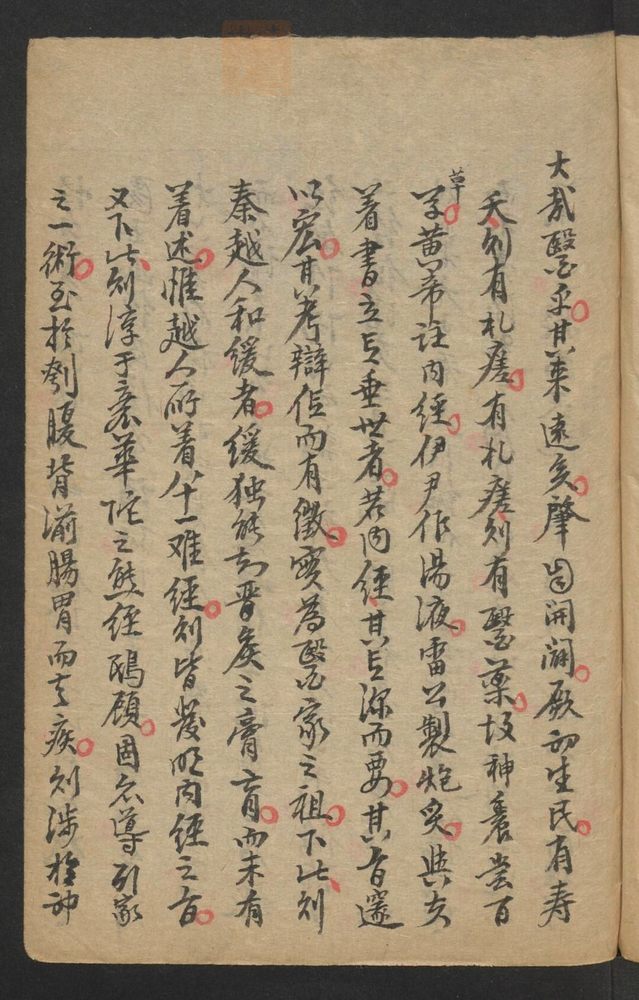 大哉醫乎其來遠矣肇自開闢厥初生民有寿
夭則有札瘥有札瘥則有醫藥故神農尝百
草黄帝註内經伊尹作湯液雷公製炮炙與夫
着書立言垂世者若内經其言深而要其旨邃
以宏其考辯信而有徵實為醫家之祖下此則
秦越人和緩者緩独能知晋矦之膏肓而未有
着述惟越人所着八十一难經則皆發明内經之旨
又下此則淳于意華佗之熊經鴟顧固亦導引家
之一術至於刳腹背湔腸胃而去疾則涉於神